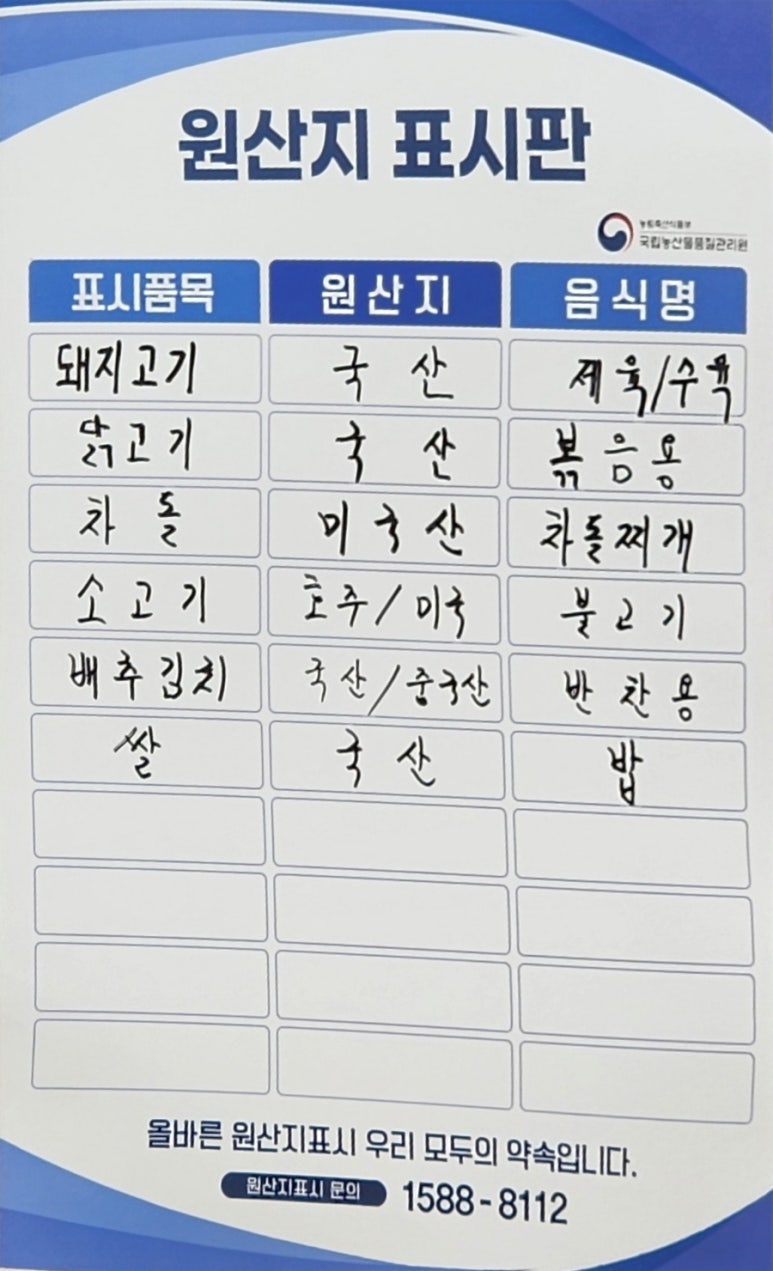 원산지 표시판
농림축산식품부
국립농산물품질관리원
표시품목 원산지 음식명
돼지고기 국산 제육/수육
닭고기 국산 볶음용
차돌 미국산 차돌찌개
소고기 호주/미국 불고기
배추김치 국산/중국산 반찬용
쌀 국산 밥
올바른 원산지표시 우리 모두의 약속입니다.
원산지표시 문의 1588-8112